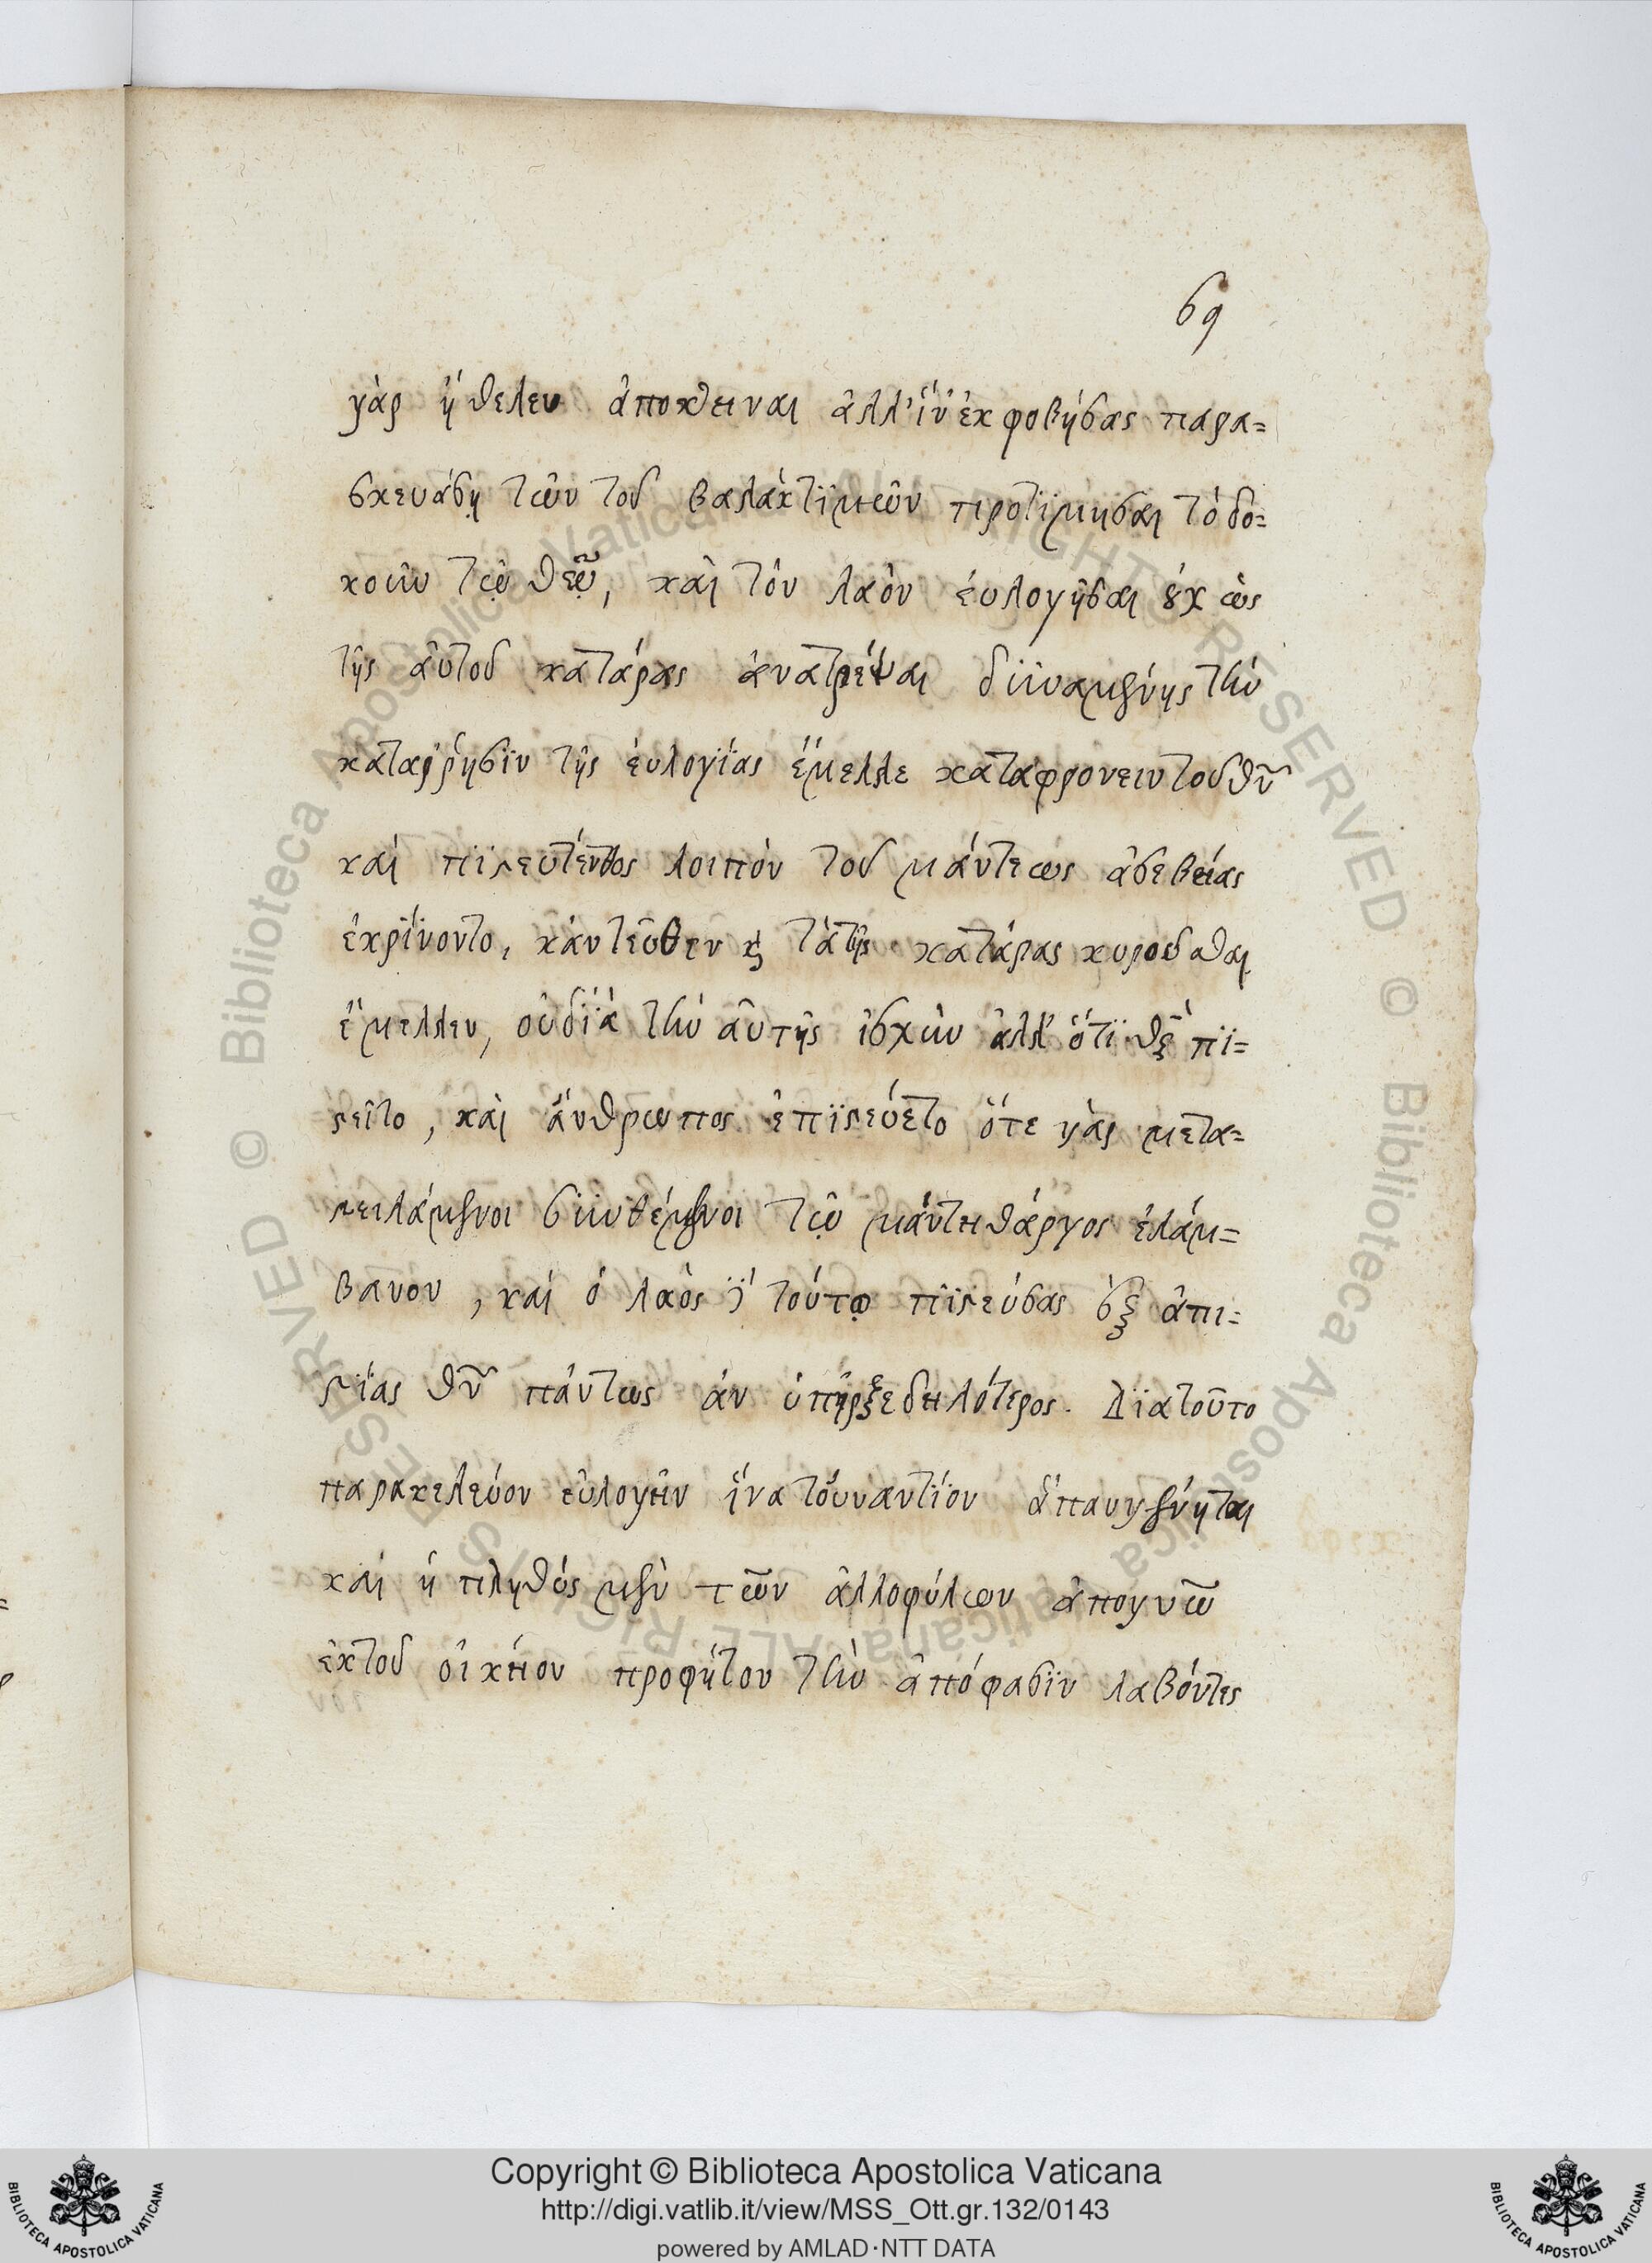 69
γὰρ ἤθελεν ἀποκτειναι ἀλλ' ἵν' ἐκφοβήσας παρα=
σκευάσῃ τῶν τοῦ βαλὰκ τϊμῶν προτϊμησαι τὸ δο=
κοῦν τῷ θεῷ, καὶ τὸν λαὸν εὐλογῆσαι οὐχ ὡς
τῆς αὐτοῦ κατάρας ἀνατρέψαι δυναμένης τὴν
κατάρρησϊν τῆς εὐλογΐας ἔμελλε καταφρονειν τοῦ θῦ
καὶ πϊστευτέντος λοιπὸν τοῦ μάντεως ἀσεβείας
ἐκρΐνοντο, κἀντεῦθεν κ τὰ τῆς κατάρας κυροῦσθαι
ἔμελλεν, οὐ δϊὰ τὴν αὐτῆς ἰσχὺν ἀλλ' ὅτϊ θς ἠπϊ=
στεῖτο, καὶ ἄνθρωπος ἐπϊστεύετο ὅτε γὰρ μετα=
στειλάμενοι συνθέμενοι τῷ μάντει θάρσος ἐλάμ=
βανον, καὶ ὁ λαὸς τούτῳ πϊστεύσας ἐξ ἀπι=
στΐας θῦ πάντως ἀν ὑπῆρξε δειλότερος. Δϊατοῦτο
παρακελεύον εὐλογεῖν ἵνα τοὐναντϊον ἅπαν γένηται
καὶ ἡ πληθὺς μὲν τῶν ἀλλοφύλων ἀπογνῶ
ἐκ τοῦ οἰκείου προφήτου τὴν ἀπόφασϊν λαβόντες
Copyright © Biblioteca Apostolica Vaticana
http://digi.vatlib.it/view/MSS_Ott.gr.132/0143
powered by AMLAD·NTT DATA